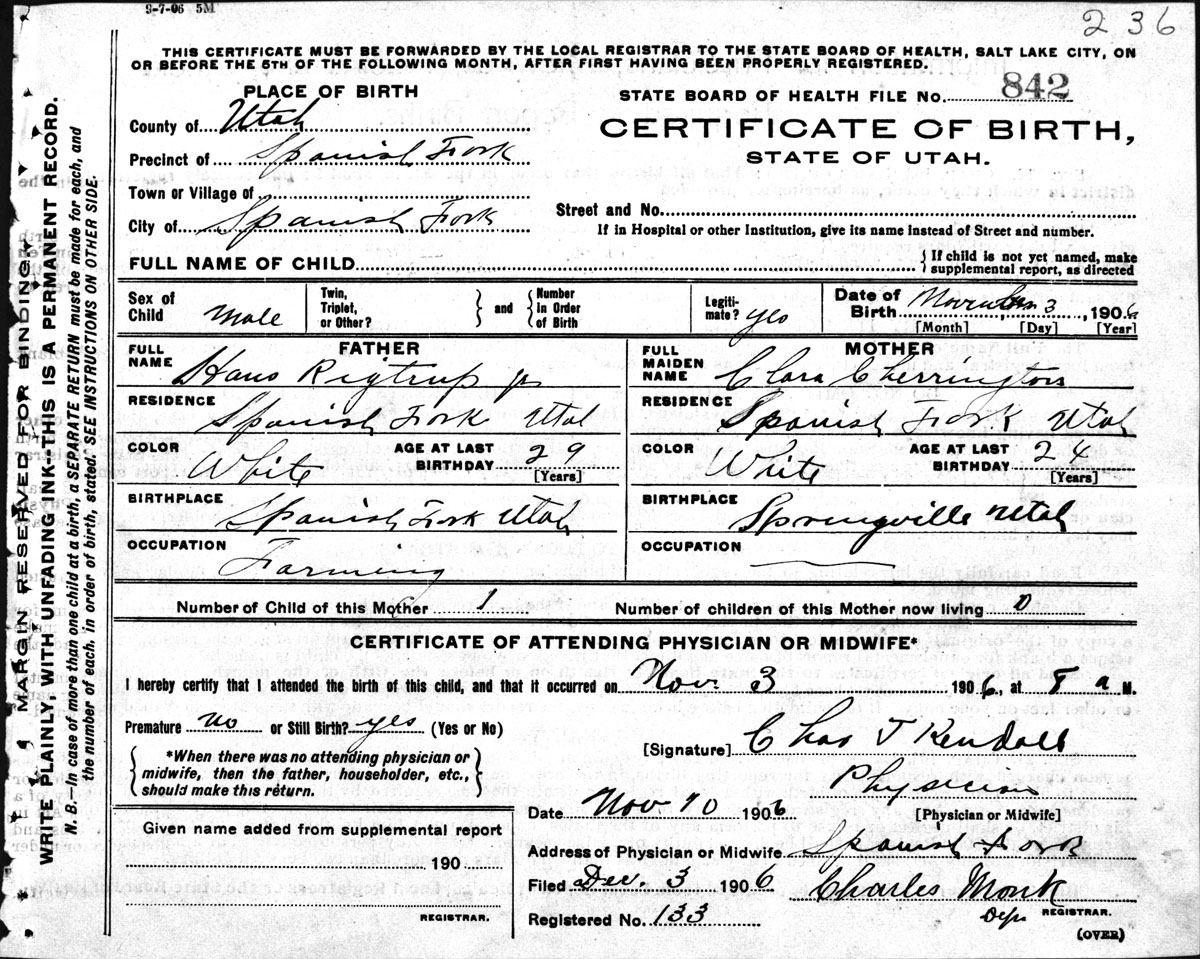 9-7-06 5M
236
THIS CERTIFICATE MUST BE FORWARDED BY THE LOCAL REGISTRAR TO THE STATE BOARD OF HEALTH, SALT LAKE CITY, ON
OR BEFORE THE 5TH OF THE FOLLOWING MONTH, AFTER FIRST HAVING BEEN PROPERLY REGISTERED.
PLACE OF BIRTH
STATE BOARD OF HEALTH FILE No. 842
County of Utah
CERTIFICATE OF BIRTH,
STATE OF UTAH.
Precinct of Spanish Fork
Town or Village of
City of Spanish Fork
Street and No.
If in Hospital or other Institution, give its name instead of Street and number.
FULL NAME OF CHILD
{ If child is not yet named, make
supplemental report, as directed
Sex of Child Male
Twin, Triplet, or Other? } and { Number In Order of Birth
Legiti-mate? yes
Date of Birth November 3, 1906
[Month] [Day] [Year]
FATHER
FULL NAME Hans Rigtrup jr
MOTHER
FULL MAIDEN NAME Clara Cherrington
RESIDENCE Spanish Fork Utah
RESIDENCE Spanish Fork Utah
COLOR White AGE AT LAST BIRTHDAY 29 [Years]
COLOR White AGE AT LAST BIRTHDAY 24 [Years]
BIRTHPLACE Spanish Fork Utah
BIRTHPLACE Springville Utah
OCCUPATION Farming
OCCUPATION
Number of Child of this Mother 1 Number of children of this Mother now living 0
CERTIFICATE OF ATTENDING PHYSICIAN OR MIDWIFE*
I hereby certify that I attended the birth of this child, and that it occurred on Nov. 3 1906, at 8 a M.
Premature no or Still Birth? yes (Yes or No)
{ *When there was no attending physician or
midwife, then the father, householder, etc.,
should make this return. }
[Signature] Chas T Kendall
Physician
[Physician or Midwife]
Date Nov 10 1906
Given name added from supplemental report
190
REGISTRAR.
Address of Physician or Midwife Spanish Fork
Filed Dec. 3 1906 Charles Monk
Dep REGISTRAR.
Registered No. 133
(OVER)
MARGIN RESERVED FOR BINDING.
WRITE PLAINLY, WITH UNFADING INK—THIS IS A PERMANENT RECORD.
N. B.—In case of more than one child at a birth, a SEPARATE RETURN must be made for each, and
the number of each, in order of birth, stated. SEE INSTRUCTIONS ON OTHER SIDE.